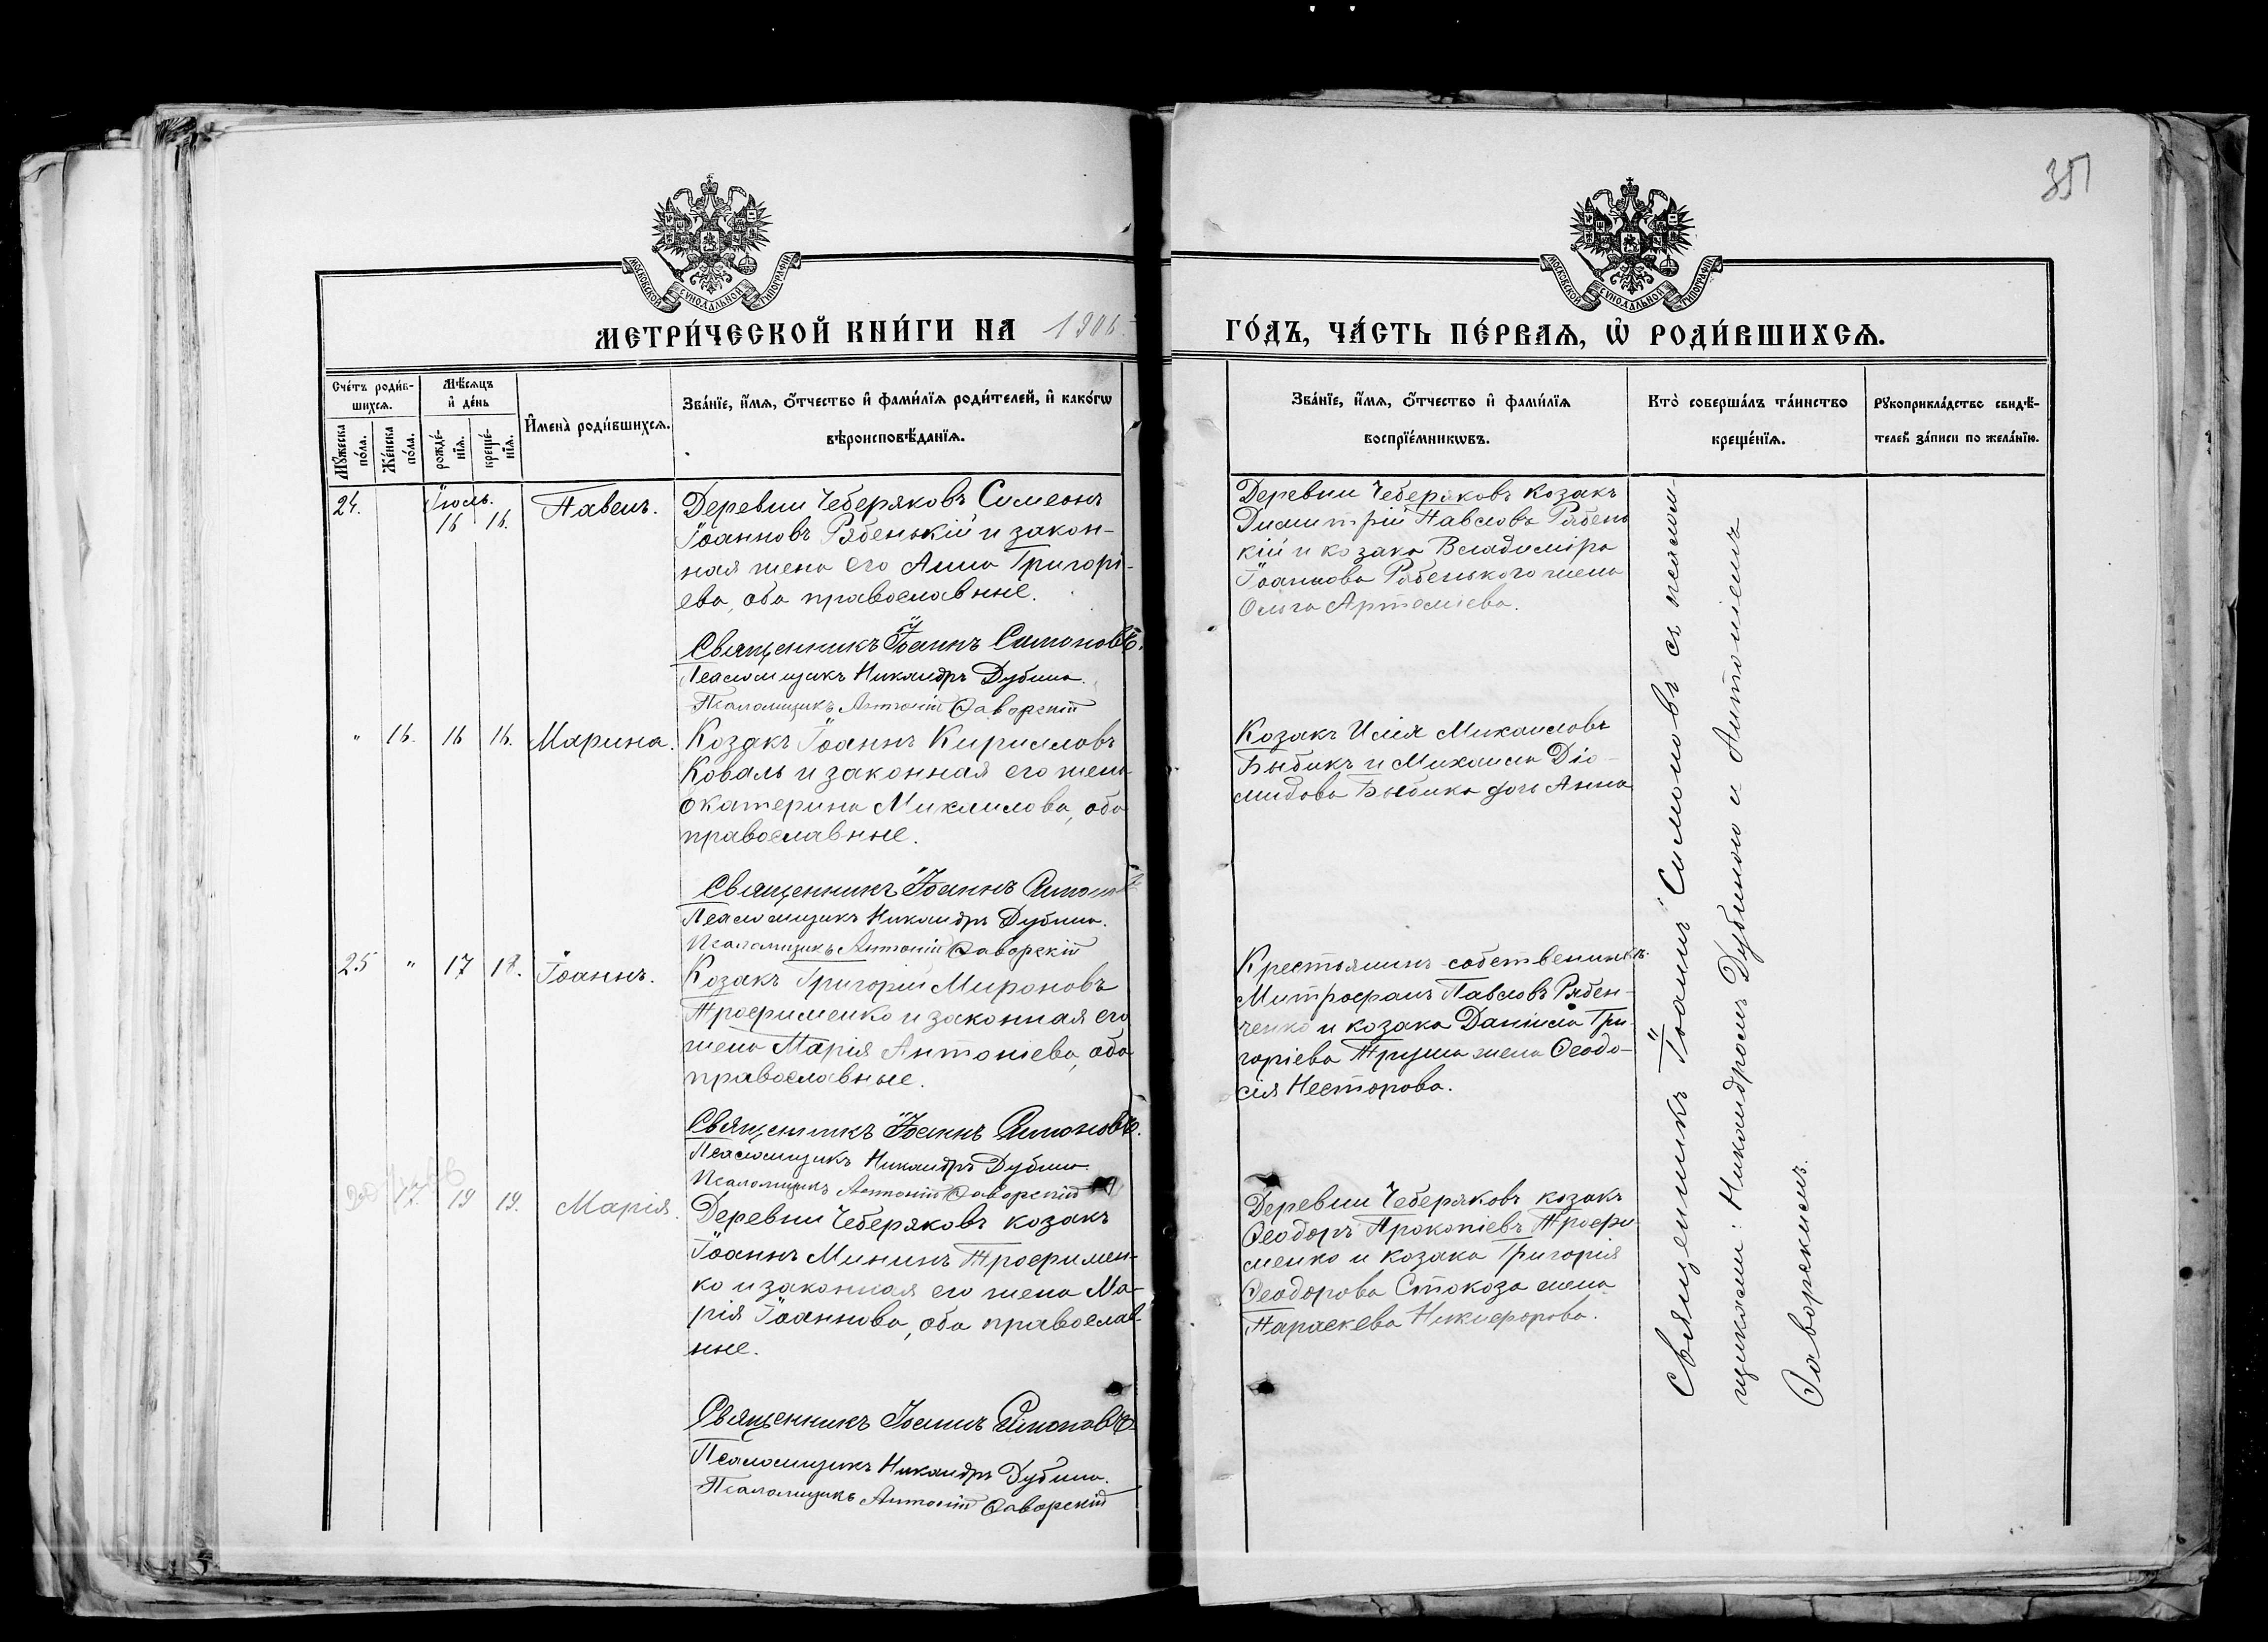 351
МОСКОВСКОЙ СѴНОДАЛЬНОЙ ТИПОГРАФІИ
МОСКОВСКОЙ СѴНОДАЛЬНОЙ ТИПОГРАФІИ
МЕТРИ́ЧЕСКОЙ КНИ́ГИ НА 1906
ГО́ДЪ, ЧА́СТЬ ПЕ́РВАѦ, Ѡ҆ РОДИ́ВШИХСѦ.
Сче́тъ роди́в-
шихсѧ.
Мꙋ́жеска по́ла.
Же́нска по́ла.
Мѣ́сѧцъ
и҆ де́нь
рожде́-
нїѧ.
креще́-
нїѧ.
И҆мена̀ роди́вшихсѧ.
Зва́нїе, и҆́мѧ, ѻ҆́тчество и҆ фами́лїѧ роди́телей, и҆ како́гѡ
вѣроисповѣ́данїѧ.
Зва́нїе, и҆́мѧ, ѻ҆́тчество и҆ фами́лїѧ
воспрїе́мникѡвъ.
Кто̀ соверша́лъ та́инство
креще́нїѧ.
Рꙋкоприкла́дство свидѣ́-
телей за́писи по жела́нїю.
24. Іюль. 16 16. Павелъ.
Деревни Чеберяковъ Симеонъ
Іоанновъ Рябенькій и закон-
ная жена его Анна Григорі-
ева, оба православные.
Священникъ Іоаннъ Симоновъ.
Псаломщикъ Никандръ Дубина.
Псаломщикъ Антоній Ѳаворскій
Деревни Чеберяковъ козакъ
Димитрій Павловъ Рябень
кій и козака Владиміра
Іоаннова Рябенького жена
Ольга Артеміева.
" 16. 16 16. Марина.
Козакъ Іоаннъ Кирилловъ
Коваль и законная его жена
Екатерина Михаилова, оба
православные.
Священникъ Іоаннъ Симоновъ
Псаломщикъ Никандръ Дубина.
Псаломщикъ Антоній Ѳаворскій
Козакъ Илія Михаиловъ
Быбикъ и Михаила Діо-
мидова Быбика дочь Анна
25 " 17 18. Іоаннъ.
Козакъ Григорій Мироновъ
Трофименко и законная его
жена Марія Антоніева, оба
православные.
Священникъ Іоаннъ Симоновъ.
Псаломщикъ Никандръ Дубина.
Псаломщикъ Антоній Ѳаворскій
Крестьянинъ-собственникъ.
Митрофанъ Павловъ Рябен-
ченко и козака Даніила Гри-
горіева Труша жена Ѳеодо-
сія Несторова.
17. 19 19. Марія.
Деревни Чеберяковъ козакъ
Іоаннъ Мининъ Трофимен-
ко и законная его жена Ма-
рія Іоаннова, оба православ-
ные.
Священникъ Іоаннъ Симоновъ
Псаломщикъ Никандръ Дубина.
Псаломщикъ Антоній Ѳаворскій
Деревни Чеберяковъ козакъ
Ѳеодоръ Прокопіевъ Трофи
менко и козака Григорія
Ѳеодорова Стокоза жена
Параскева Никифорова.
Священникъ Іоаннъ Симоновъ съ псалом-
щиками: Никандромъ Дубиною и Антоніемъ
Ѳаворскимъ.